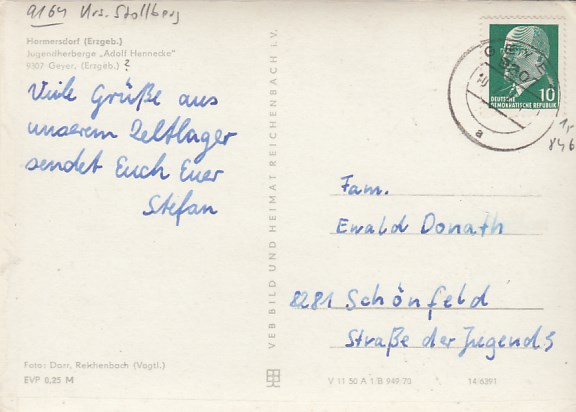 9164 Krs. Stollberg
Hormersdorf (Erzgeb.)
Jugendherberge „Adolf Hennecke"
9307 Geyer. (Erzgeb.)
?
Viele Grüße aus
unserem Zeltlager
sendet Euch Euer
Stefan
VEB BILD UND HEIMAT REICHENBACH i.V.
DEUTSCHE
DEMOKRATISCHE REPUBLIK
10
a
Fam.
Ewald Donath
8281 Schönfeld
Straße der Jugend 5
Foto: Darr, Reichenbach (Vogtl.)
EVP 0,25 M
V 11 50 A 1/B 949/70
14/6391